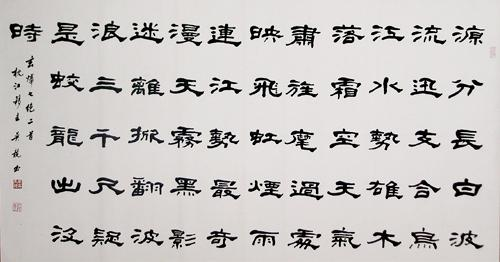 源分長白波
流迅支合烏
江水勢雄木
落霜空天氣
肅旌麾過處
映飛虹煙雨
連江勢最奇
漫天霧黑影
迷離掀翻波
浪三千尺疑
是蛟龍出没
時
玄燁七绝二首
枕江